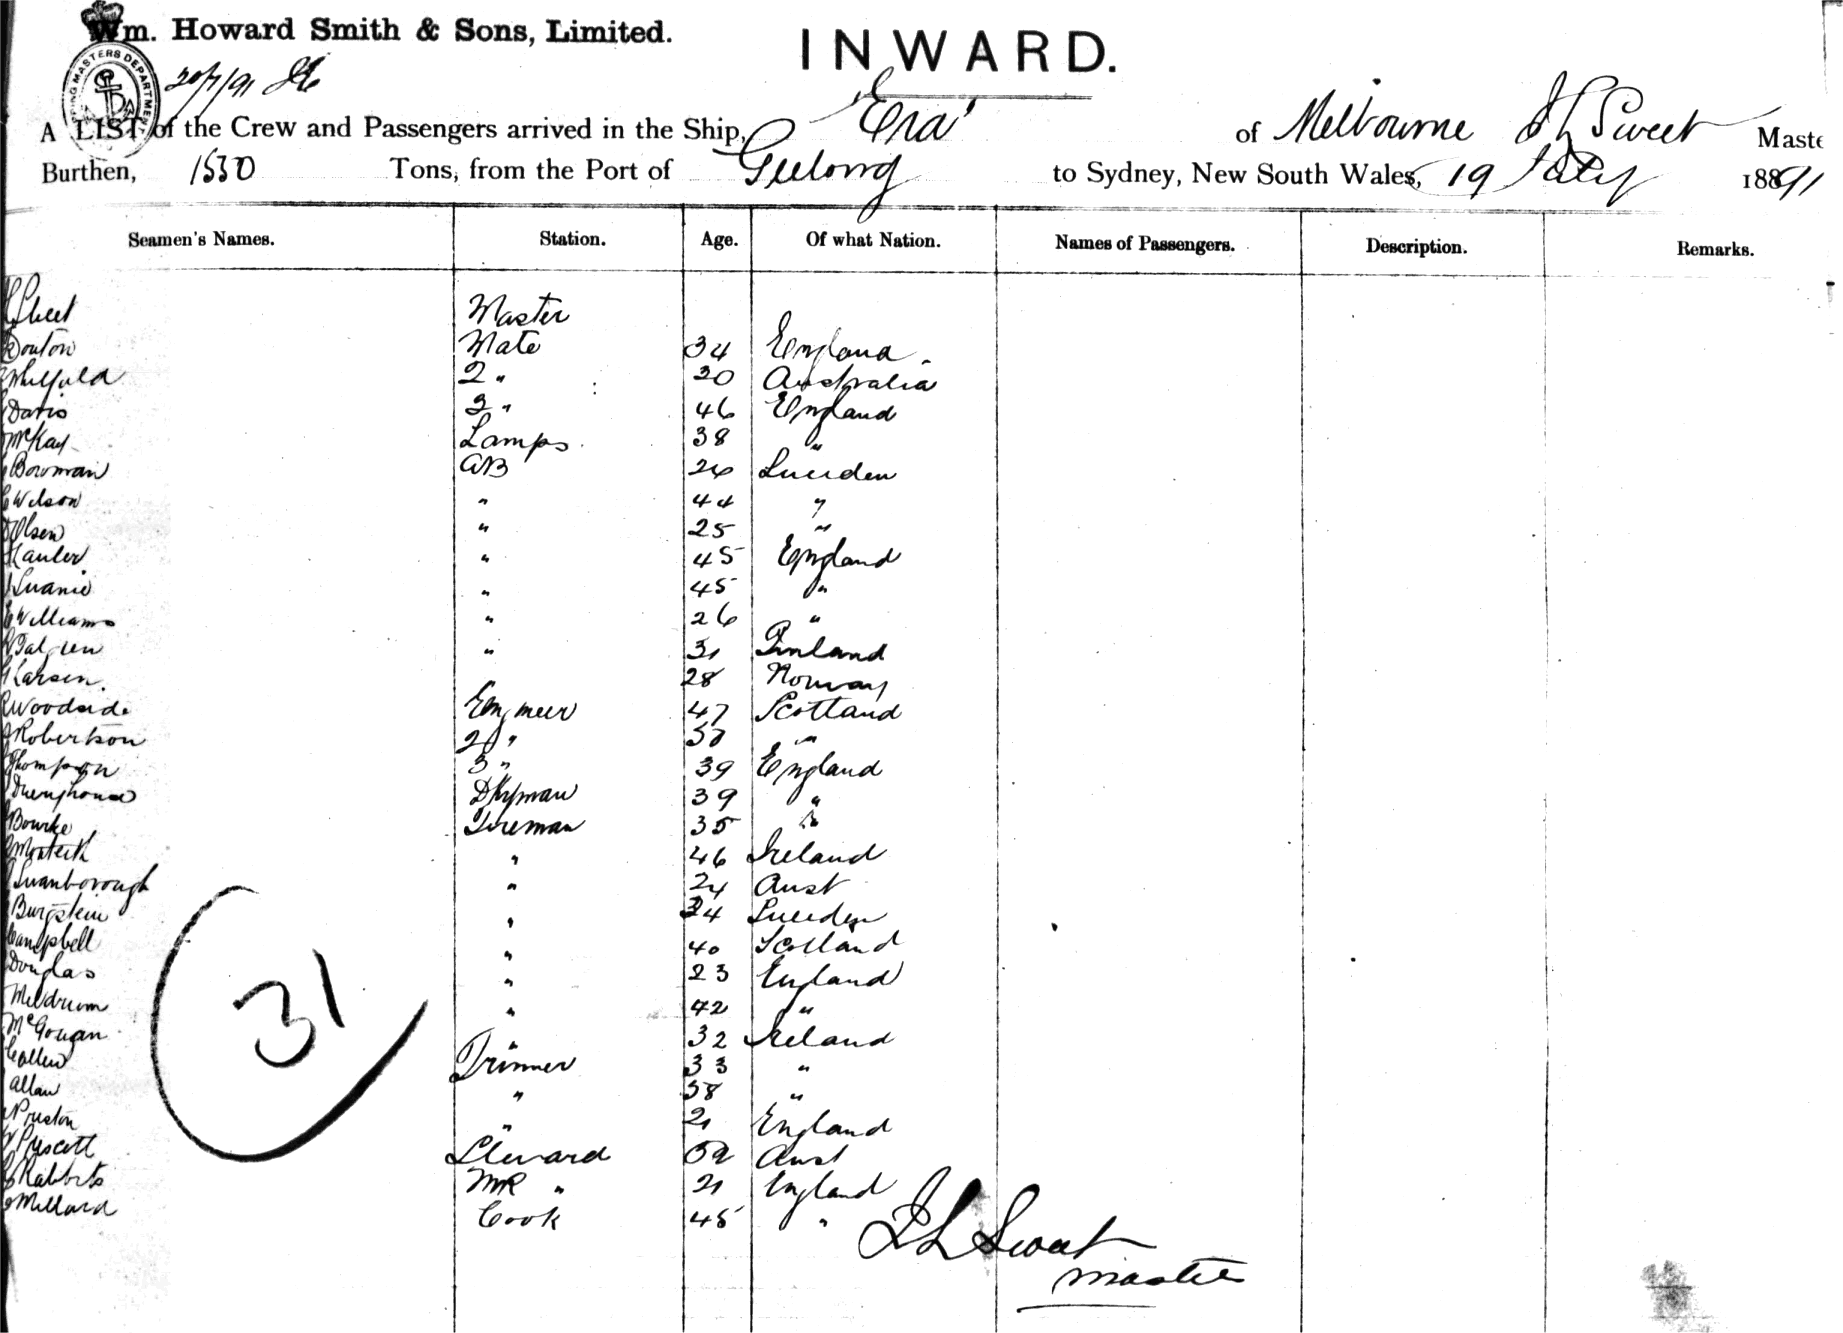 Wm. Howard Smith & Sons, Limited.
INWARD.
20/7/91
A LIST of the Crew and Passengers arrived in the Ship, "Era" of Melbourne J L Sweet Maste
Burthen, 1550 Tons, from the Port of Geelong to Sydney, New South Wales, 19 July 1891
Seamen's Names. Station. Age. Of what Nation. Names of Passengers. Description. Remarks.
Sweet Master
Douton Mate 34 England
2 " 30 Australia
Davis 3 " 46 England
McKay Lamps 38 "
Bowman AB 26 Sweden
Wilson " 44 "
Olsen " 25 "
" 45 England
" 45 "
E Williams " 26 "
" 31 Finland
Larsen 28 Norway
R Woodside Engineer 47 Scotland
Robertson 2 " "
Thompson 3 " 39 England
Dkyman 39 "
Bourke Fireman 35 "
Monteith " 46 Ireland
Swanborough " 24 Aust
Burgstein " 34 Sweden
Campbell " 40 Scotland
Douglas " 23 England
Meldrum " 42 "
McGougan " 32 Ireland
Callen Trimmer 33 "
Allan " 38 "
Preston " 21 England
W Prescott Steward Aust
Rabbits MR " 21 England
Millard Cook 45 "
31
J L Sweet
Master